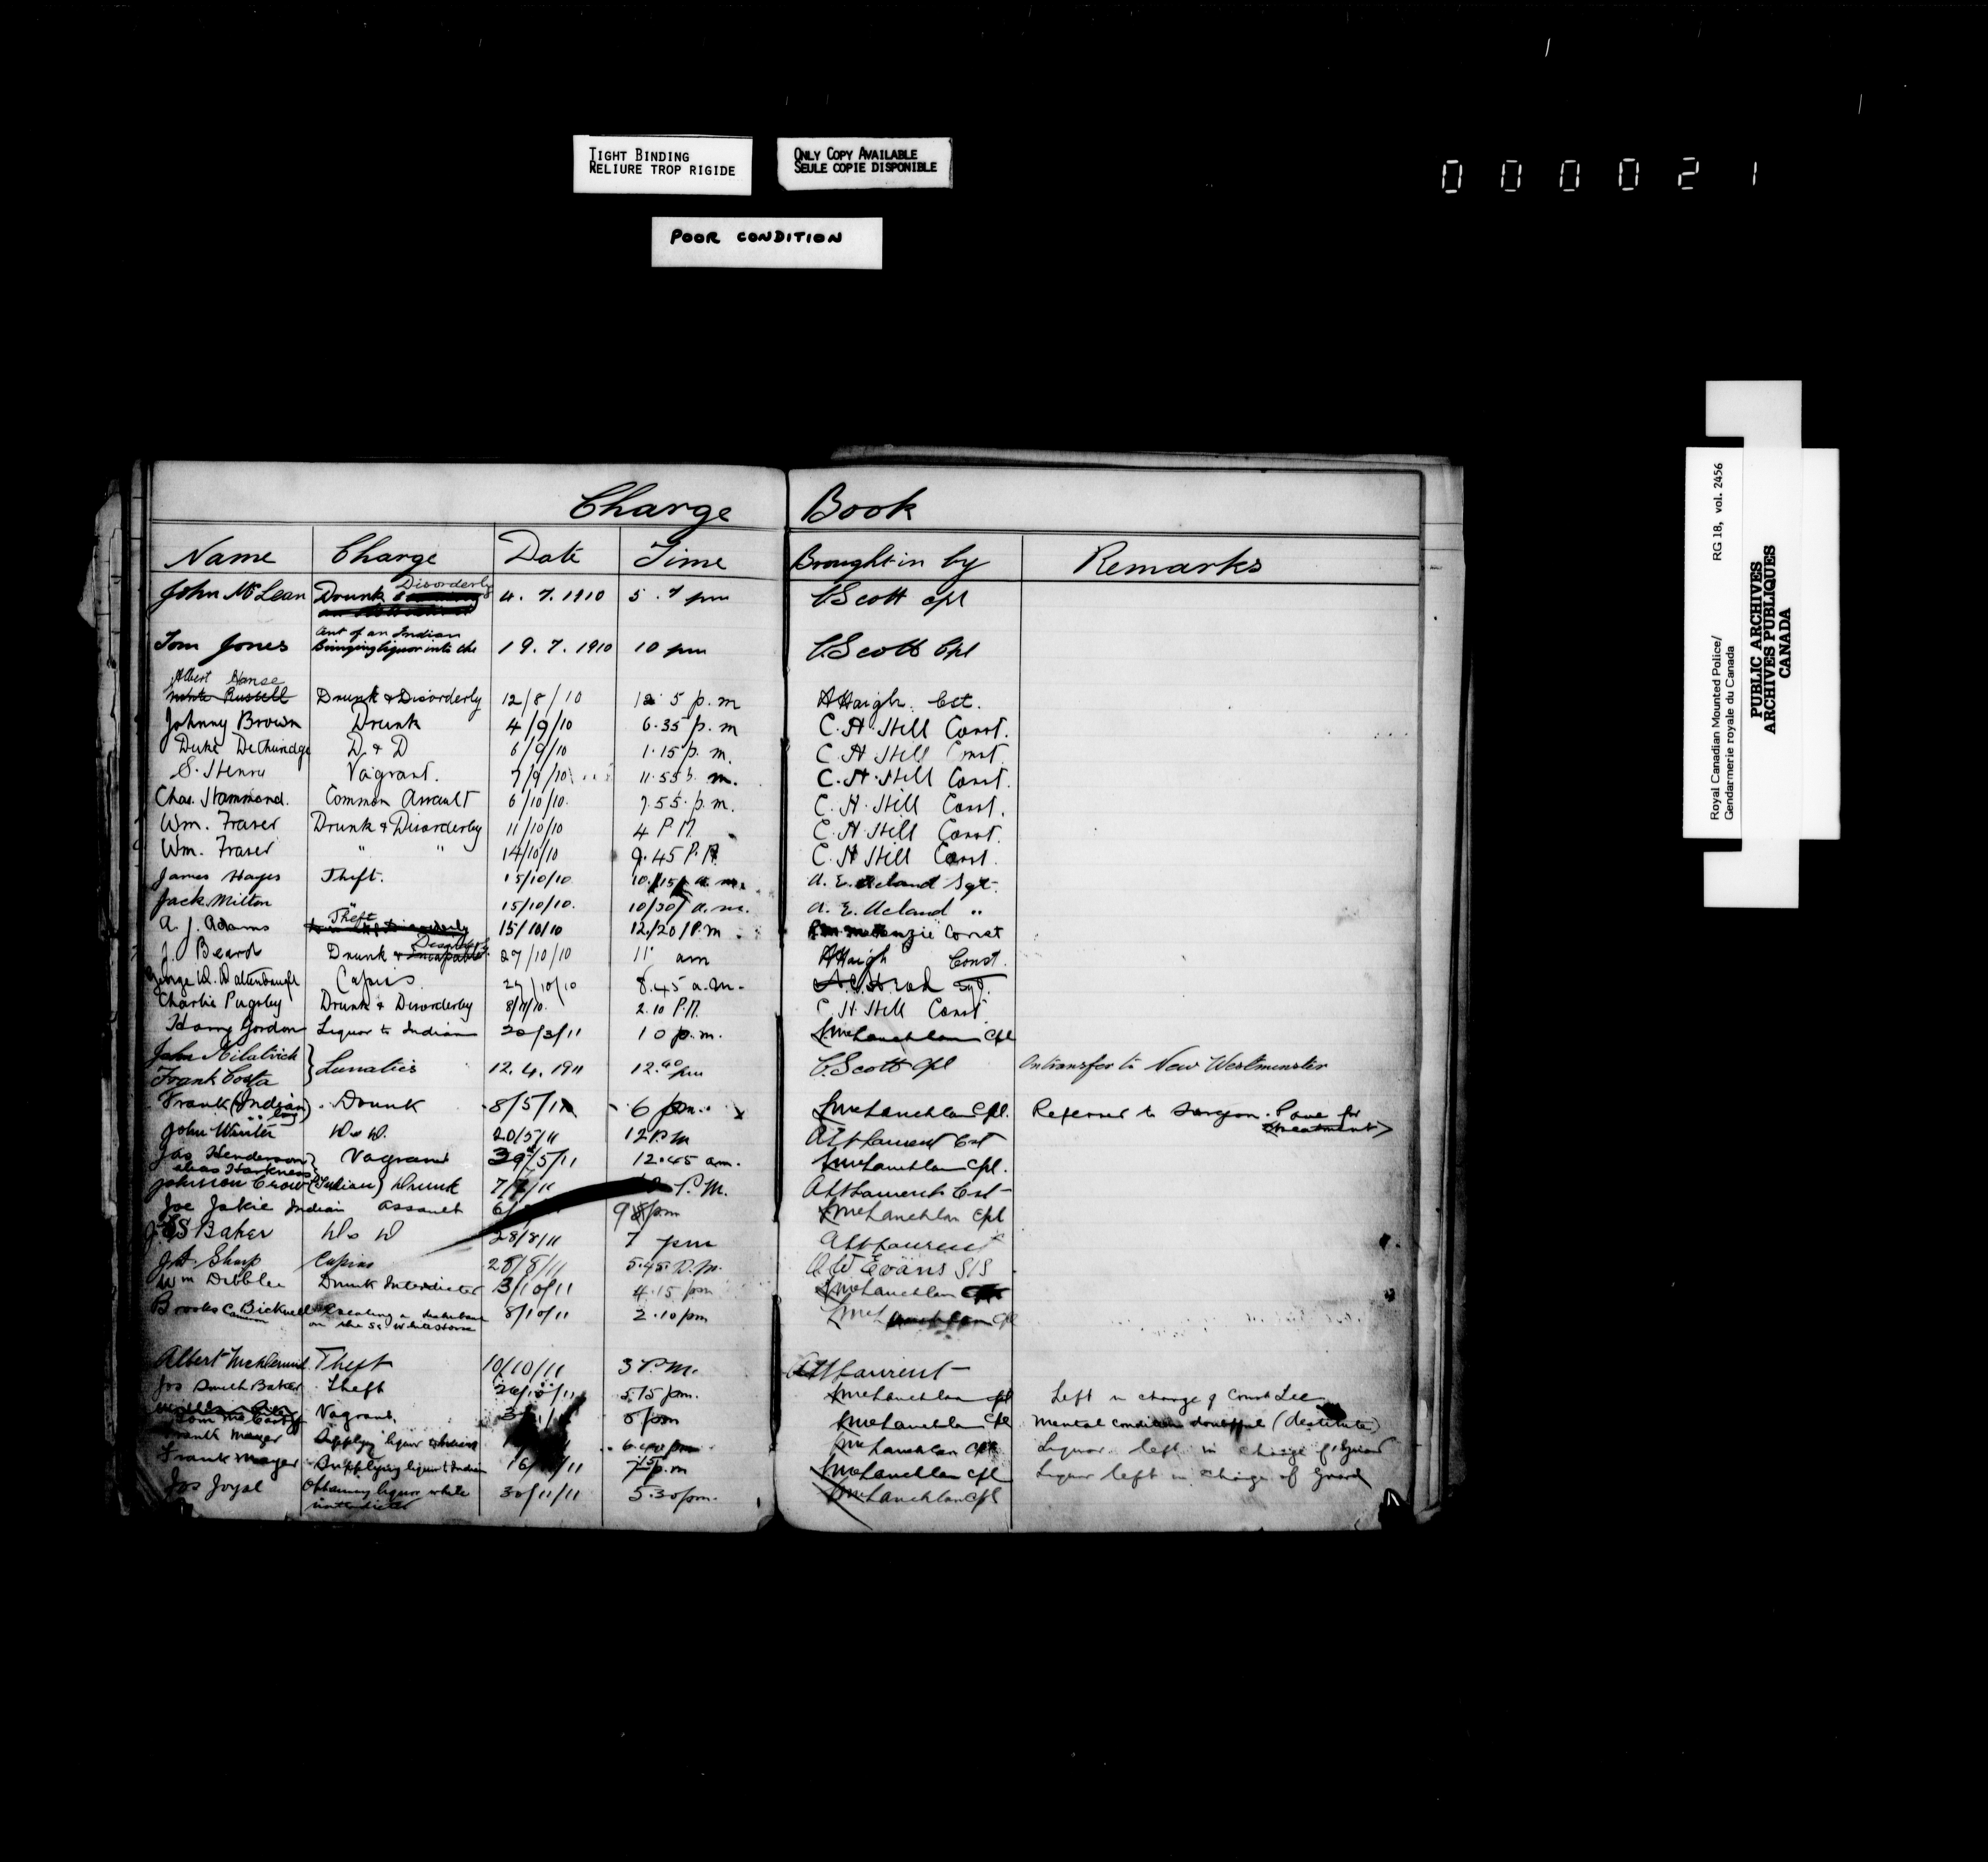 TIGHT BINDING
RELIURE TROP RIGIDE
ONLY COPY AVAILABLE
SEULE COPIE DISPONIBLE
000021
POOR CONDITION
Royal Canadian Mounted Police/ RG 18, vol. 2456
Gendarmerie royale du Canada
PUBLIC ARCHIVES
ARCHIVES PUBLIQUES
CANADA
Charge Book
Name Charge Date Time Brought in by Remarks
Disorderly
John McLean Drunk & 4. 7. 1910 5. 7 pm C Scott Cpl
out of an Indian
Tom Jones Bringing liquor into the 19. 7. 1910 10 pm C Scott Cpl
Albert
Russell Drunk & Disorderly 12/8/10 12 5 p.m A Haigh Cst.
Johnny Brown Drunk 4/9/10 6.35 p.m C. H. Hill Const.
Duke D & D 6/9/10 1.15 p.m. C. H. Hill Const.
S. Henry Vagrant. 7/9/10 11.55 m. C. H. Hill Const.
Chas. Hammond. Common Assault 6/10/10. 7.55. p.m. C. H. Hill Const.
Wm. Fraser Drunk & Disorderly 11/10/10 4 P.M. C. H. Hill Const.
Wm. Fraser " " 14/10/10 9.45 P.M. C. H. Hill Const.
James Hayes Theft. 15/10/10 10/15 a.m. A. E. Acland Sgt.
Jack Milton " 15/10/10. 10/30/a.m. A. E. Acland "
A. J. Adams Theft 15/10/10 12/20/P.m McKenzie Const
Disorderly
J. Beard Drunk & Incapable 27/10/10 11 am A Haigh Const.
George Capias 8.45 a.m. Sgt.
Charlie Pugsley Drunk & Disorderly 8/11/10. 2.10 P.M. C. H. Hill Const.
Harry Gordon Liquor to Indian 20/3/11 10 p.m. McLauchlan Cpl
John Kilatrick
Frank Costa } Lunatics 12. 4. 1911 12.40 pm C. Scott Cpl On transfer to New Westminster
Frank (Indian) Drunk 8/5/11 6 pm. McLauchlan Cpl. Referred to Surgeon. Pave for
treatment
John Winter D & D. 20/5/11 12 P.M A H Laurent Cst
Jas Henderson } Vagrant 29/5/11 12.45 am. McLauchlan Cpl.
alias Harkness
Johnson Crow (Indian) Drunk 7/7/11 P.M. A H Laurent Cst
Joe Jakie Indian Assault 9 pm McLauchlan Cpl
Baker D & D 28/8/11 7 pm A H Laurent
J. A. Sharp Capias 28/8/11 5.45. P.M. Evans S/S
Wm Dibblee Drunk Interdicted 3/10/11 4.15 pm McLauchlan
Brooks Bicknell Creating a disturbance 8/10/11 2.10 pm McLauchlan Cpl
Cameron on the SS White Horse
Albert Theft 10/10/11 3 P.M. A H Laurent
Jos Smith Baker Theft 5.15 pm. McLauchlan Cpl Left in charge of Const Lee
Tom McCarthy Vagrant. 8 pm McLauchlan Cpl Mental condition doubtful (destitute)
Frank Mayer Supplying liquor to Indian 6.40 pm McLauchlan Cpl Liquor left in charge of Guard
Frank Mayer Supplying liquor to Indian 16/ /11 p.m McLauchlan Cpl Liquor left in charge of Guard
Jos Joyal Obtaining liquor while 30/11/11 5.30 pm. McLauchlan Cpl
interdicted